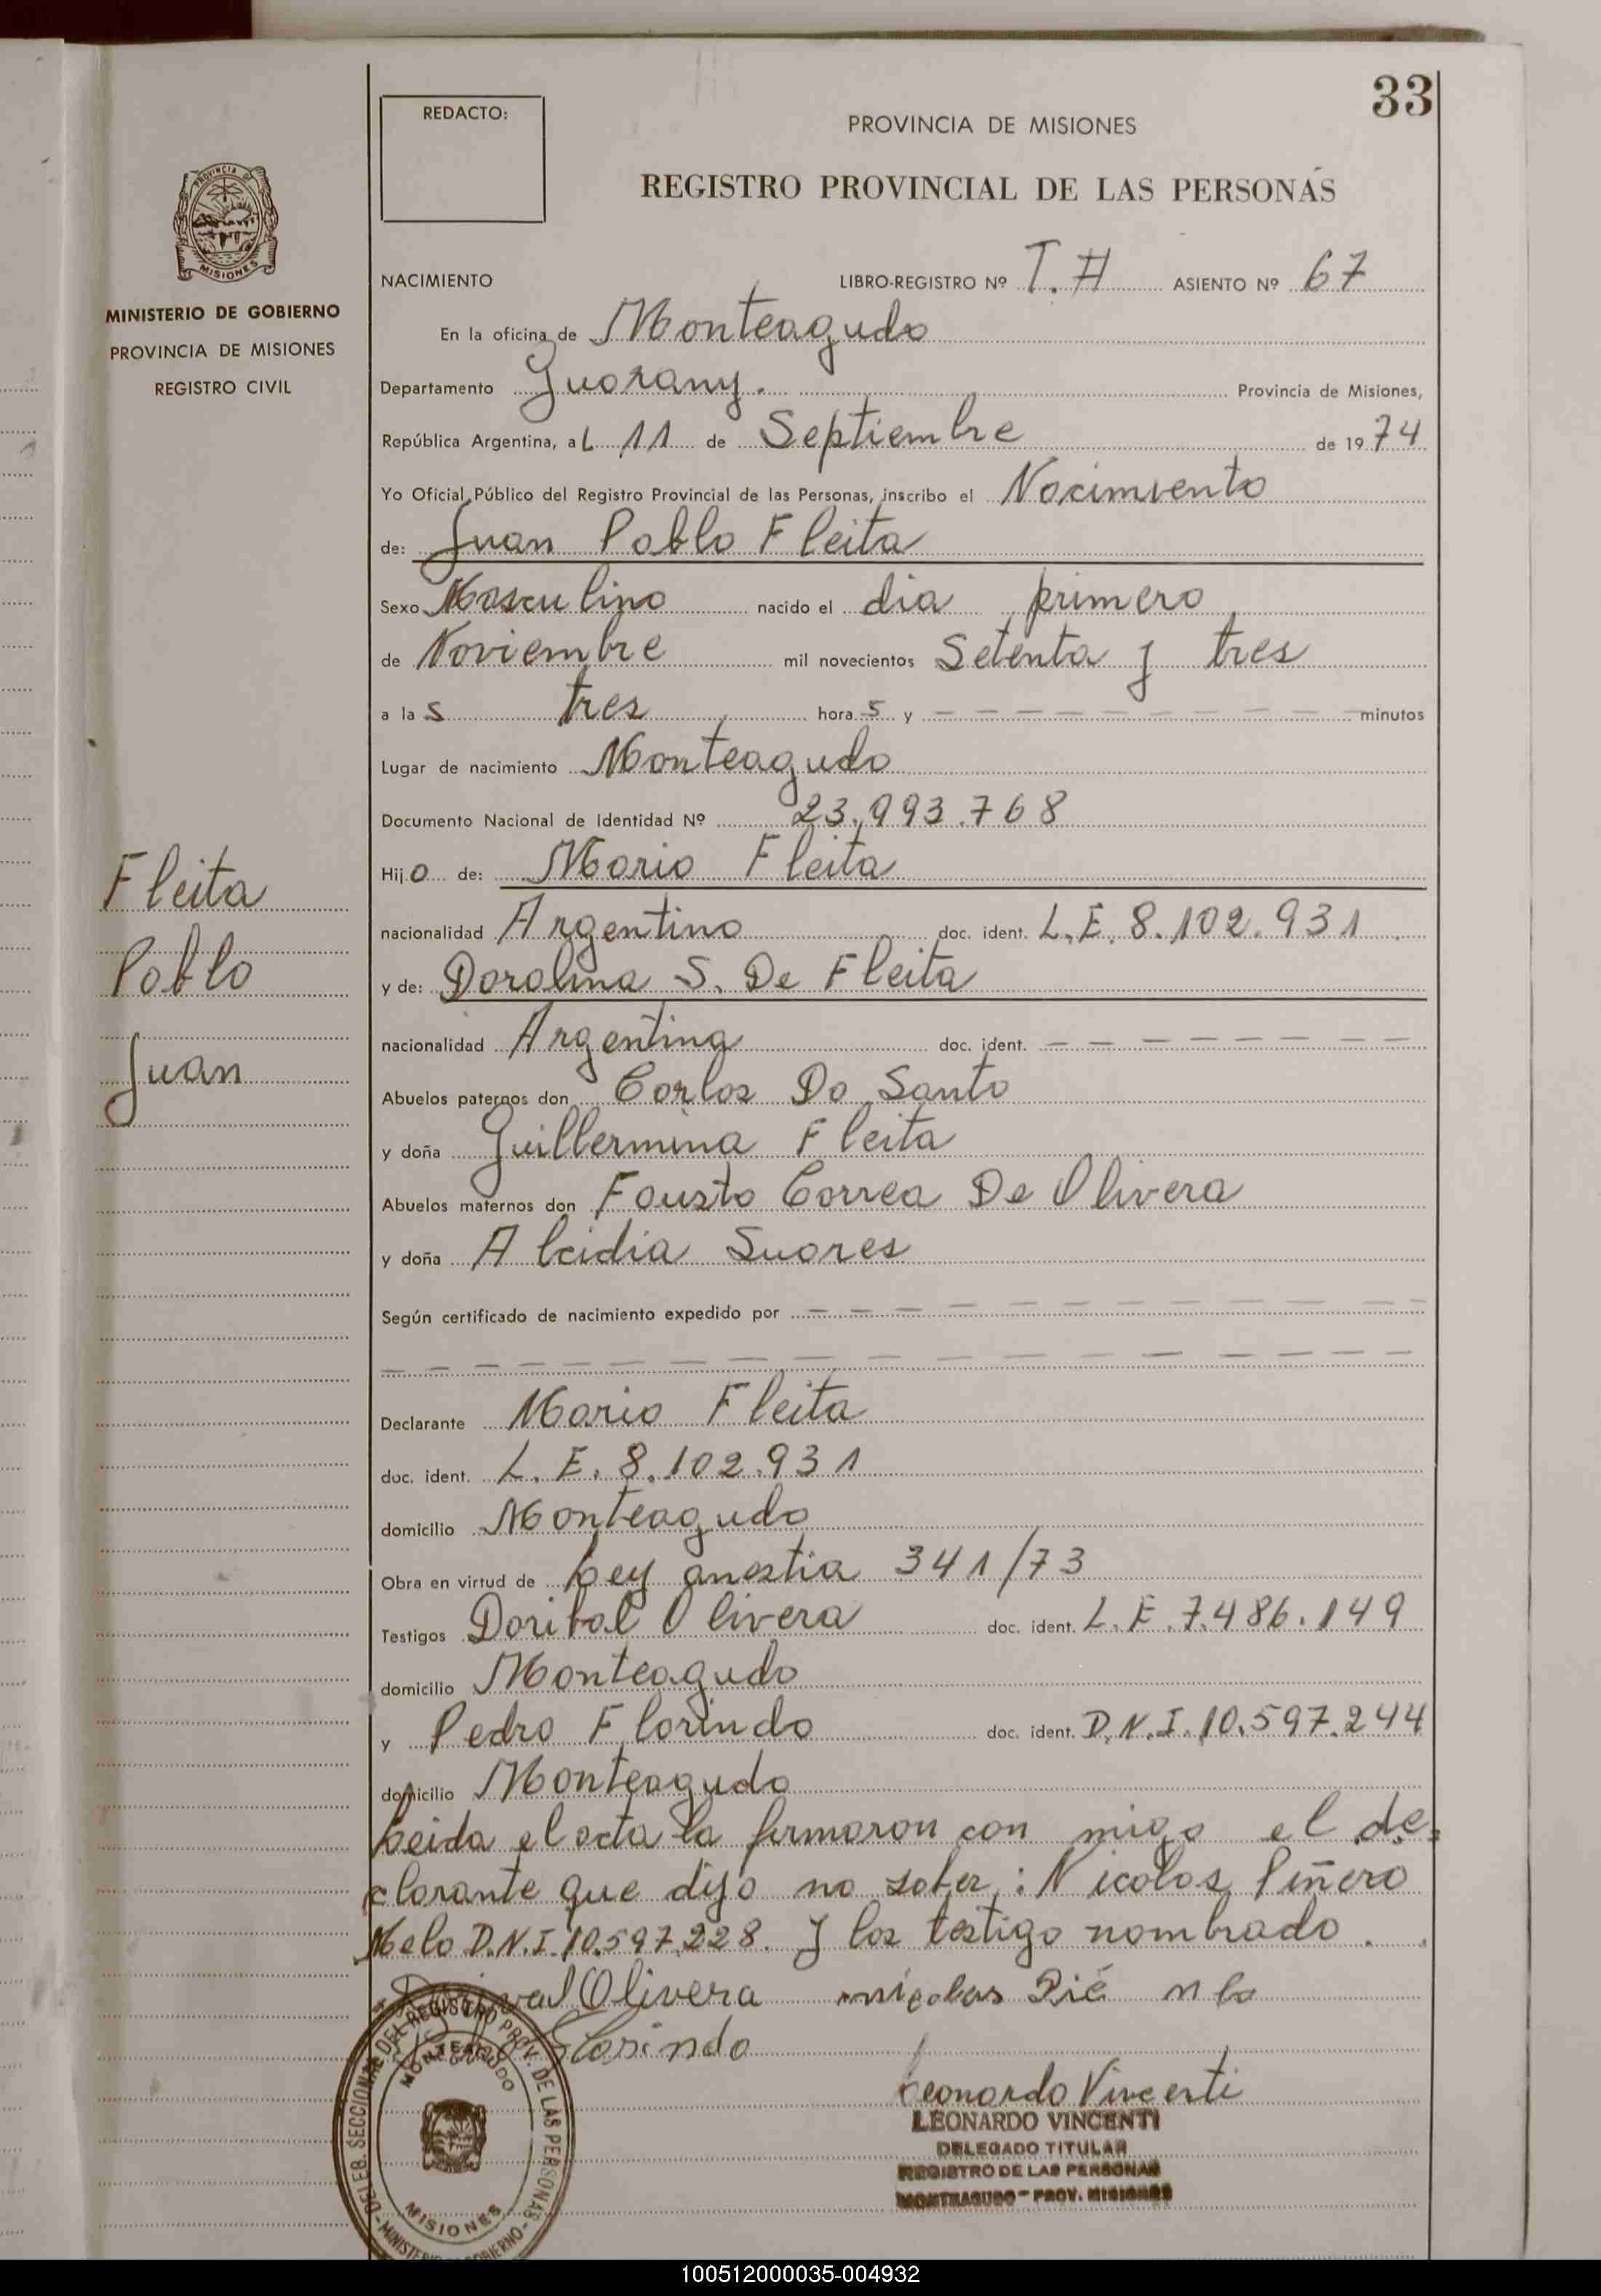 33
REDACTO:
PROVINCIA DE MISIONES
REGISTRO PROVINCIAL DE LAS PERSONAS
PROVINCIA DE
MISIONES
MINISTERIO DE GOBIERNO
PROVINCIA DE MISIONES
REGISTRO CIVIL
NACIMIENTO LIBRO-REGISTRO Nº T. A ASIENTO Nº 67
En la oficina de Monteagudo
Departamento Guarany. Provincia de Misiones,
República Argentina, a L 11 de Septiembre de 1974
Yo Oficial Público del Registro Provincial de las Personas, inscribo el Nacimiento
de: Juan Pablo Fleita
Sexo Masculino nacido el dia primero
de Noviembre mil novecientos Setenta y tres
a las tres horas y — — — — — — — — — minutos
Lugar de nacimiento Monteagudo
Documento Nacional de Identidad Nº 23.993.768
Hijo de: Mario Fleita
nacionalidad Argentino doc. ident. L.E. 8.102.931
y de: Doralina S. De Fleita
nacionalidad Argentina doc. ident. — — — — — — — —
Abuelos paternos don Carlos Do Santo
y doña Guillermina Fleita
Abuelos maternos don Fausto Correa De Olivera
y doña Alcidia Suares
Según certificado de nacimiento expedido por — — — — — — — — — — —
— — — — — — — — — — — — — — — — — —
Declarante Mario Fleita
doc. ident. L. E. 8.102.931
domicilio Monteagudo
Obra en virtud de Ley anestia 341/73
Testigos Doribal Olivera doc. ident. L.E. 7.486.149
domicilio Monteagudo
y Pedro Florindo doc. ident. D.N.I. 10.597.244
domicilio Monteagudo
Leida el acta la firmaron con migo el de=
clarante que dijo no saber: Nicolas Piñero
Melo D.N.I. 10.597.228. y los testigo nombrado.
Olivera nicolas
Florindo
Leonardo Vincenti
LEONARDO VINCENTI
DELEGADO TITULAR
REGISTRO DE LAS PERSONAS
MONTEAGUDO - PROV. MISIONES
Fleita
Pablo
Juan
SECCIONAL DEL REGISTRO PROV. DE LAS PERSONAS
MONTEAGUDO
MISIONES
100512000035-004932